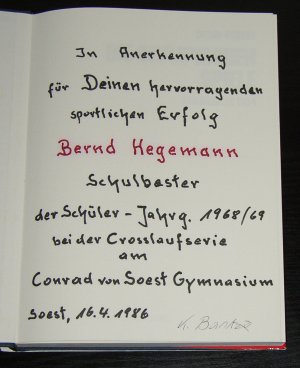 In Anerkennung
für Deinen hervorragenden
sportlichen Erfolg
Bernd Hegemann
Schulbester
der Schüler - Jahrg. 1968/69
bei der Crosslaufserie
am
Conrad von Soest Gymnasium
Soest, 16.4.1986
K.